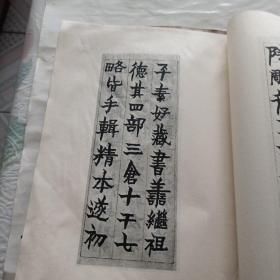 子素好藏書善繼祖
德其四部三倉十千七
略皆手輯精本遂初